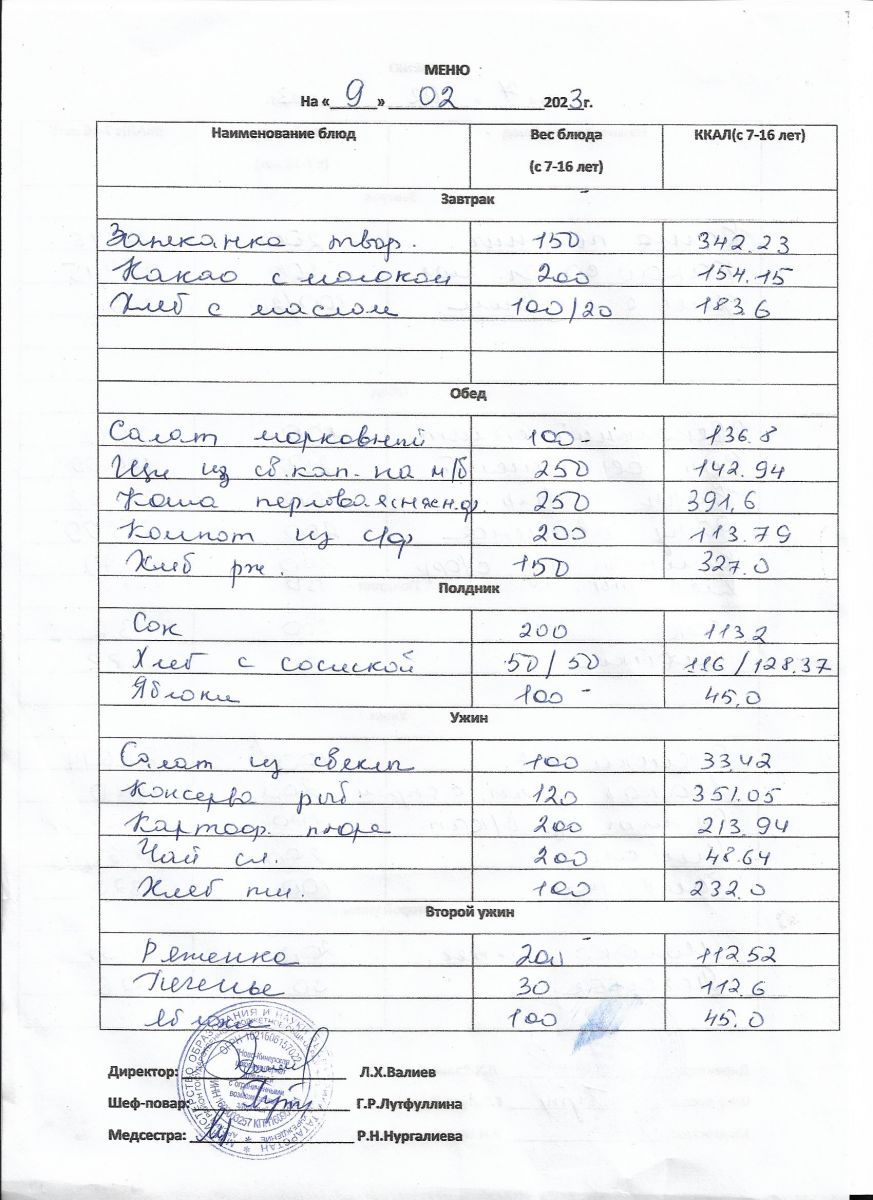 МЕНЮ
На « 9 » 02 2023г.
Наименование блюд Вес блюда (с 7-16 лет) ККАЛ(с 7-16 лет)
Завтрак
Запеканка твор. 150 342.23
Какао с молоком 200 154.15
Хлеб с маслом 100/20 183.6
Обед
Салат морковный 100 136.8
Щи из св.кап. на м/б 250 142.94
Каша перловая с мясн.ф. 250 391,6
Компот из с/ф 200 113.79
Хлеб рж. 150 327.0
Полдник
Сок 200 113.2
Хлеб с сосиской 50/50 116/128.37
Яблоки 100 45.0
Ужин
Салат из свеклы 100 33.42
Консерва рыб 120 351.05
Картоф. пюре 200 213.94
Чай сл. 200 48.64
Хлеб пш. 100 232.0
Второй ужин
Ряженка 200 112.52
Печенье 30 112.6
Яблоки 100 45.0
Директор: Л.Х.Валиев
Шеф-повар: Г.Р.Лутфуллина
Медсестра: Р.Н.Нургалиева